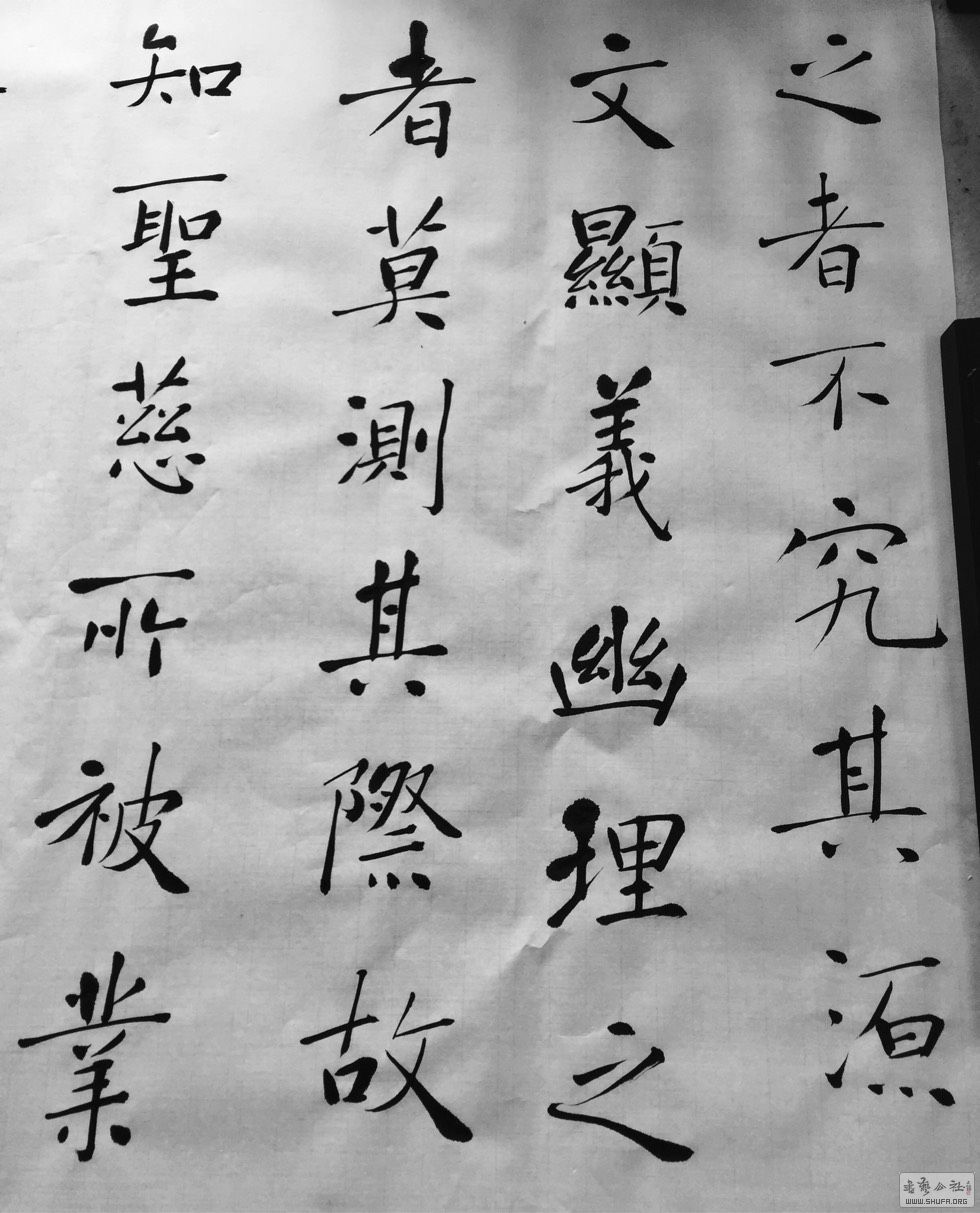 之者不究其源
文顯義幽理之
者莫測其際故
知聖慈所被業
書藝公社
WWW.SHUFA.ORG